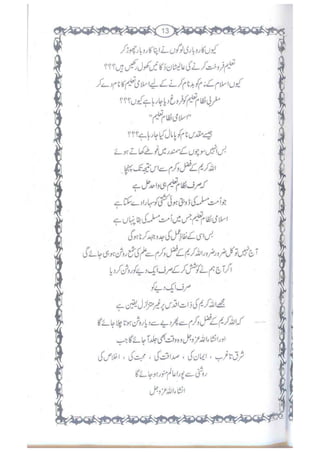 13
کیوں کاروباری لوگوں نے اپنا کاروبار چھوڑ کر
تعلیم فروخت کرنے کی عالیشان دکانیں کھول رکھیں ہیں؟؟؟
کیوں اسلام کے نام کو بدنام کرنے کے لیے اسلامی تعلیم کا نام دے کر
مغربی نظام تعلیم کو فروغ دیا جا رہا ہے کیوں؟؟؟
"اسلامی نظام تعلیم"
جیسے مقدس نام کو پامال کیا جا رہا ہے؟
بس انہیں سوچوں کے سمندر میں غوطے کھاتے ہوئے
اللہ کریم کے فضل و کرم سے اس نتیجہ تک پہنچا
کہ صرف نظام تعلیم ہی واحد حل ہے
جو اُمت مسلمہ کی ڈوبتی ہوئی کشتی کو سہارا دے سکتا ہے
اسلامی نظام تعلیم جس میں اُمت مسلمہ کی بقا پنہاں ہے
بس اسی کے نفاذِ عمل کی جدوجہد کرنا ہوگی
آج نہیں تو کل ضرور ضرور اللہ کریم کے فضل و کرم سے علم کی شمع روشن ہو ہی جائے گی
اگر آج ہم نے کوشش کر کے صرف ایک دیے کو روشن کر دیا
صرف ایک دیے کو
مجھے اللہ کریم کی ذات اقدس پر غیر متزلزل یقین ہے
کہ اللہ کریم کے فضل و کرم سے پھر دیے سے دیا روشن ہوتا چلا جائے گا
اور انشاء اللہ عزوجل وہ وقت بھی جلد آ جائے گا جب
شرق تا غرب ، ایمان کی ، صداقت کی ، محبت کی ، اخلاص کی
روشنی سے پورا عالم منور ہو جائے گا
انشاء اللہ عزوجل